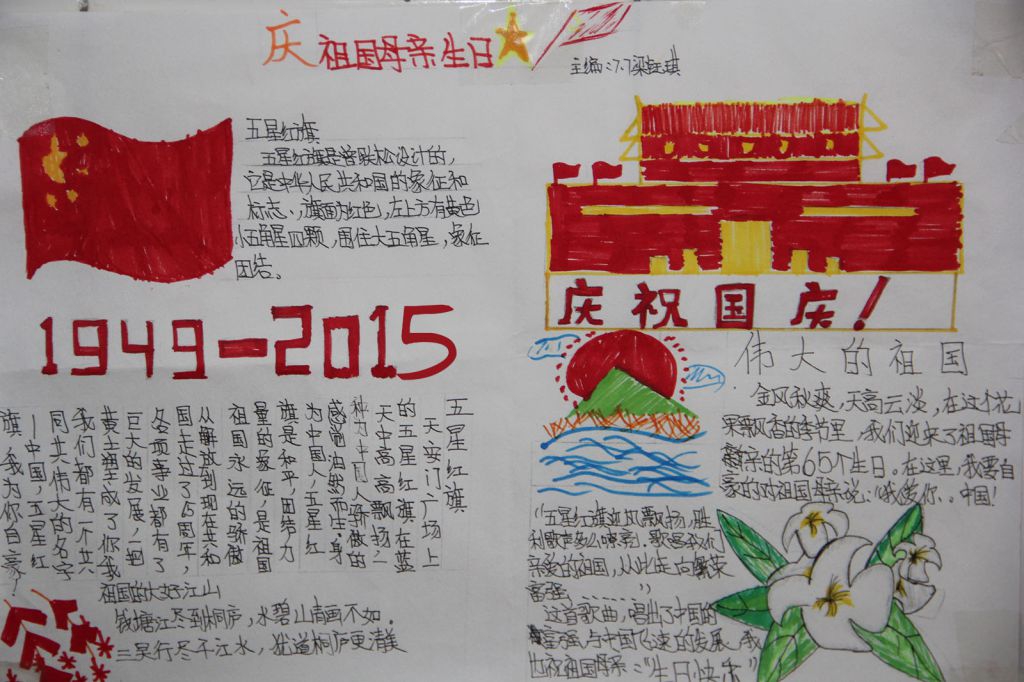 庆祖国母亲生日
主编:7.7梁钰琪
五星红旗
五星红旗是曾联松设计的,
它是中华人民共和国的象征和
标志、旗面为红色,左上方有黄色
小五角星四颗,围住大五角星,象征
团结。
庆祝国庆!
1949-2015
伟大的祖国
金风秋爽,天高云淡,在这个花
果飘香的季节里,我们迎来了祖国母
亲的第65个生日。在这里,我要自
豪的对祖国母亲说:"我爱你、中国!
五星红旗
天安门广场上
的五星红旗在蓝
天中高高飘扬,一
种为中国人骄傲的
感慨油然而生,身
为中国人,五星红
旗是和平团结力
量的象征,是祖国
祖国永远的骄傲
从解放到现在共和
国走过了65周年,
各项事业都有了
巨大的发展,把
黄土塑成了你我
我们都有一个共
同共伟大的名字
—中国,五星红
旗,我为你自豪!
"五星红旗迎风飘扬,胜
利歌声多么嘹亮,歌唱我们
亲爱的祖国,从此走向繁荣
富强......."
这首歌曲,唱出了中国的
富强,与中国飞速的发展,我
也祝祖国母亲:"生日快乐"
祖国的大好江山
钱塘江尽到桐庐,水碧山青画不如.
三吴行尽千江水,犹道桐庐更清美